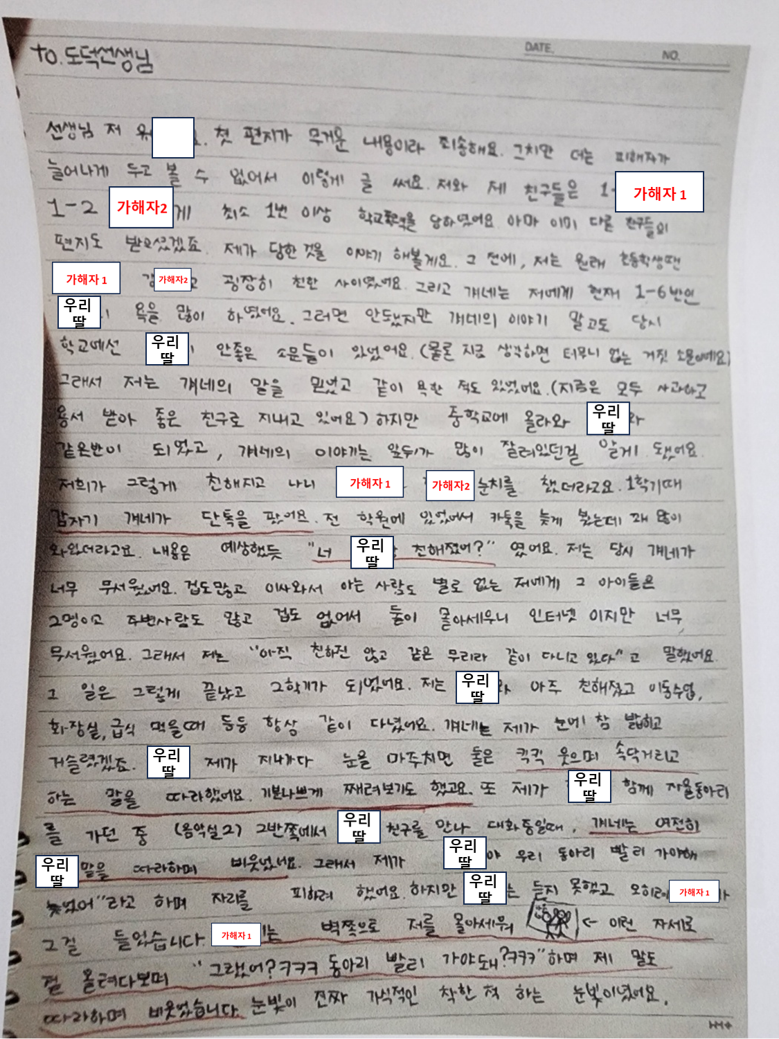 DATE. NO.
to. 도덕선생님
선생님 저 첫 편지가 무거운 내용이라 죄송해요. 그치만 더는 피해자가
늘어나게 두고 볼 수 없어서 이렇게 글 써요. 저와 제 친구들은 1- 가해자 1
1-2 가해자2 게 최소 1번 이상 학교폭력을 당하였어요 아마 이미 다른 친구들의
편지도 받으셨겠죠. 제가 당한 것을 이야기 해볼게요. 그 전에, 저는 원래 초등학생땐
가해자 1 가해자2 고 굉장히 친한 사이였어요. 그리고 걔네는 저에게 현재 1-6반인
우리 딸 욕을 많이 하였어요. 그러면 안됐지만 걔네의 이야기 말고도 당시
학교에선 우리 딸 안좋은 소문들이 있었어요. (물론 지금 생각하면 터무니 없는 거짓 소문이에요)
그래서 저는 걔네의 말을 믿었고 같이 욕한 적도 있었어요. (지금은 모두 사과하고
용서 받아 좋은 친구로 지내고 있어요) 하지만 중학교에 올라와 우리 딸 와
같은반이 되었고, 걔네의 이야기는 앞뒤가 많이 잘려있던걸 알게 됐어요.
저희가 그렇게 친해지고 나니 가해자 1 가해자2 눈치를 했더라고요. 1학기때
갑자기 걔네가 단톡을 팠어요. 전 학원에 있었어서 카톡을 늦게 봤는데 꽤 많이
와있더라고요. 내용은 예상했듯 "너 우리 딸 친해졌어?" 였어요. 저는 당시 걔네가
너무 무서웠어요. 겁도많고 이사와서 아는 사람도 별로 없는 저에게 그 아이들은
2명이고 주변사람도 많고 겁도 없어서 둘이 몰아세우니 인터넷 이지만 너무
무서웠어요. 그래서 저는 "아직 친하진 않고 같은 무리라 같이 다니고 있다"고 말했어요.
그 일은 그렇게 끝났고 2학기가 되었어요. 저는 우리 딸 와 아주 친해졌고 이동수업,
화장실, 급식 먹을때 등등 항상 같이 다녔어요. 걔네는 제가 눈에 참 밟히고
거슬렸겠죠. 우리 딸 제가 지나가다 눈을 마주치면 둘은 킥킥 웃으며 속닥거리고
하는 말을 따라했어요. 기분나쁘게 째려보기도 했고요. 또 제가 우리 딸 함께 자율동아리
를 가던 중 (음악실2) 2반쪽에서 우리 딸 친구를 만나 대화중일때, 걔네는 여전히
우리 딸 말을 따라하며 비웃었어요. 그래서 제가 우리 딸 야 우리 동아리 빨리 가야해
늦었어"라고 하며 자리를 피하려 했어요. 하지만 우리 딸 는 듣지 못했고 오히려 가해자 1 가
그걸 들었습니다 가해자 1 는 벽쪽으로 저를 몰아세워 ← 이런 자세로
절 올려다보며 "그랬어? ㅋㅋㅋ 동아리 빨리 가야돼? ㅋㅋㅋ"하며 제 말도
따라하며 비웃었습니다. 눈빛이 진짜 가식적인 착한 척 하는 눈빛이었어요.